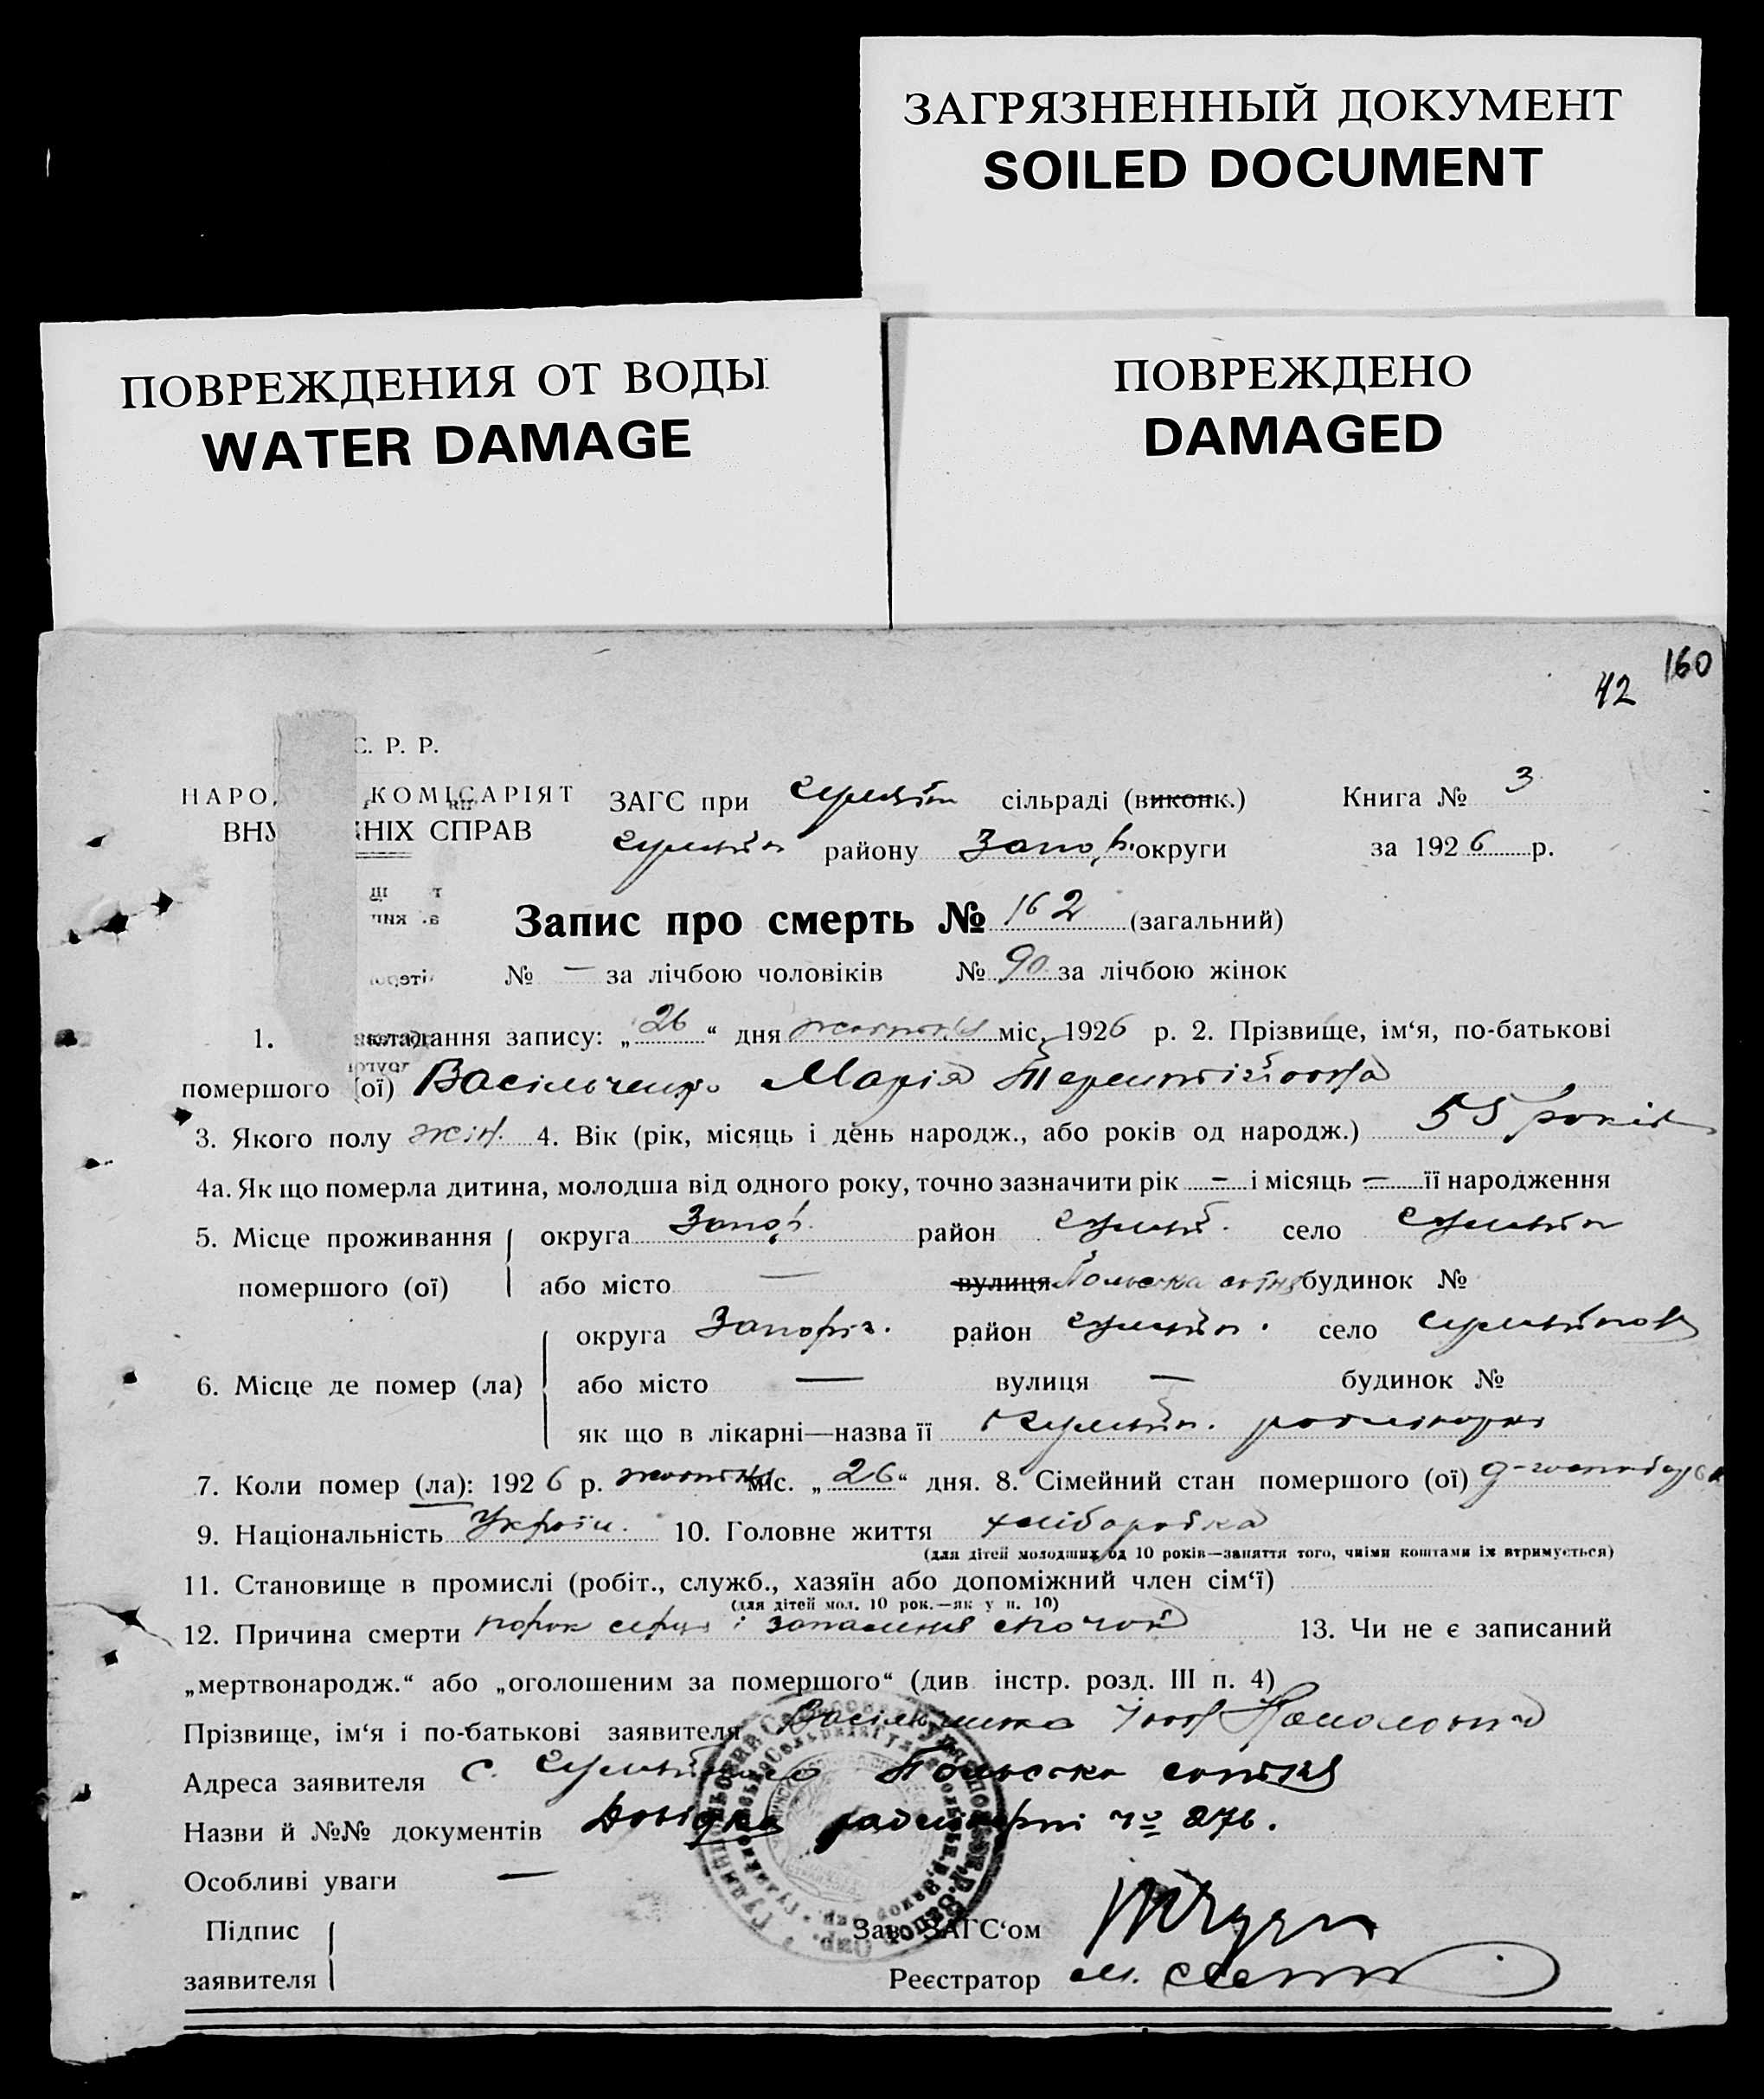 ЗАГРЯЗНЕННЫЙ ДОКУМЕНТ
SOILED DOCUMENT
ПОВРЕЖДЕНИЯ ОТ ВОДЫ
WATER DAMAGE
ПОВРЕЖДЕНО
DAMAGED
160
42
С. Р. Р.
НАРО КОМІСАРІЯТ
ВНУ НІХ СПРАВ
ЗАГС при сільраді (виконк.) Книга № 3
району Запор. округи за 1926 р.
Запис про смерть № 162 (загальний)
№ — за лічбою чоловіків № 90 за лічбою жінок
1. складання запису: „26“ дня жовтня міс. 1926 р. 2. Прізвище, ім‘я, по-батькові
помершого (ої) Васільченко Марія Терентіївна
3. Якого полу жін. 4. Вік (рік, місяць і день народж., або років од народж.) 55 років
4а. Як що померла дитина, молодша від одного року, точно зазначити рік — і місяць — її народження
5. Місце проживання округа Запор. район село
помершого (ої) або місто — вулиця Польська сотня будинок №
округа Запоріз. район село
6. Місце де помер (ла) або місто — вулиця — будинок №
як що в лікарні—назва її
7. Коли помер (ла): 1926 р. жовтня міс. „26“ дня. 8. Сімейний стан помершого (ої)
9. Національність Україн. 10. Головне життя хліборобка
(для дітей молодших од 10 років—заняття того, чиїми коштами їх втримується)
11. Становище в промислі (робіт., служб., хазяїн або допоміжний член сім‘ї)
(для дітей мол. 10 рок.—як у п. 10)
12. Причина смерти порок серця і запалення 13. Чи не є записаний
„мертвонародж.“ або „оголошеним за помершого“ (див інстр. розд. III п. 4)
Прізвище, ім‘я і по-батькові заявителя
Адреса заявителя с. Польська сотня
Назви й №№ документів Довідка № 276.
Особливі уваги —
Підпис
заявителя
Зав. ЗАГС‘ом
Реєстратор М.